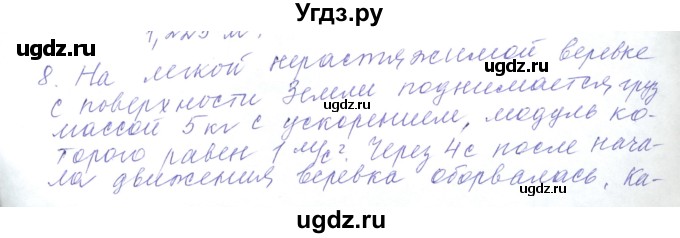 Угдз.ру
8. На легкой нерастяжимой веревке
с поверхности Земли поднимается груз
массой 5 кг с ускорением, модуль ко-
торого равен 1 м/с². Через 4 с после нача-
ла движения веревка оборвалась. Ка-
ugdz.ru
ugdz.ru
ugdz.ru
ugdz.ru
ugdz.ru
ugdz.ru
ugdz.ru
ugdz.ru